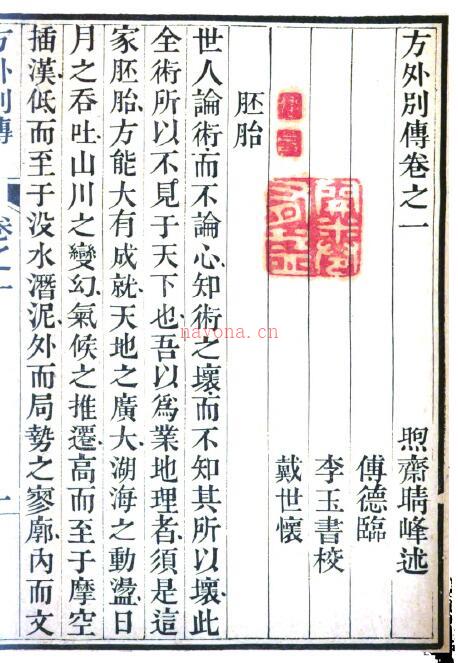 方外別傳卷之一
煦齋晴峰述
傅德臨
李玉書校
戴世懷
胚胎
世人論術而不論心知術之壞而不知其所以壞此
全術所以不見于天下也吾以爲業地理者須是這
家胚胎方能大有成就天地之廣大湖海之動盪日
月之吞吐山川之變幻氣候之推遷高而至于摩空
插漢低而至于没水潛泥外而局勢之寥廓內而文
方外別傳
卷之一
一
nayona.cn